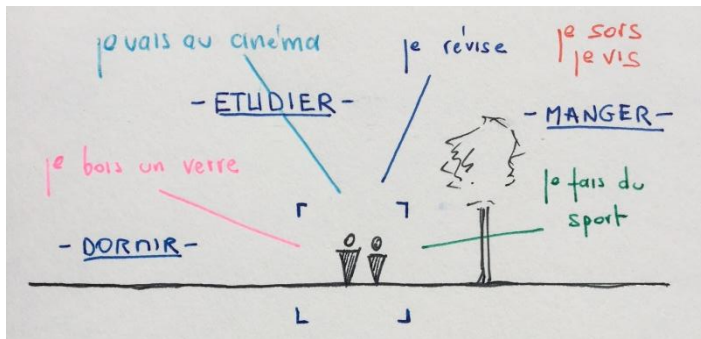 je vais au cinéma
je révise
je sors
je vis
- ETUDIER -
- MANGER -
je bois un verre
je fais du
sport
- DORMIR -